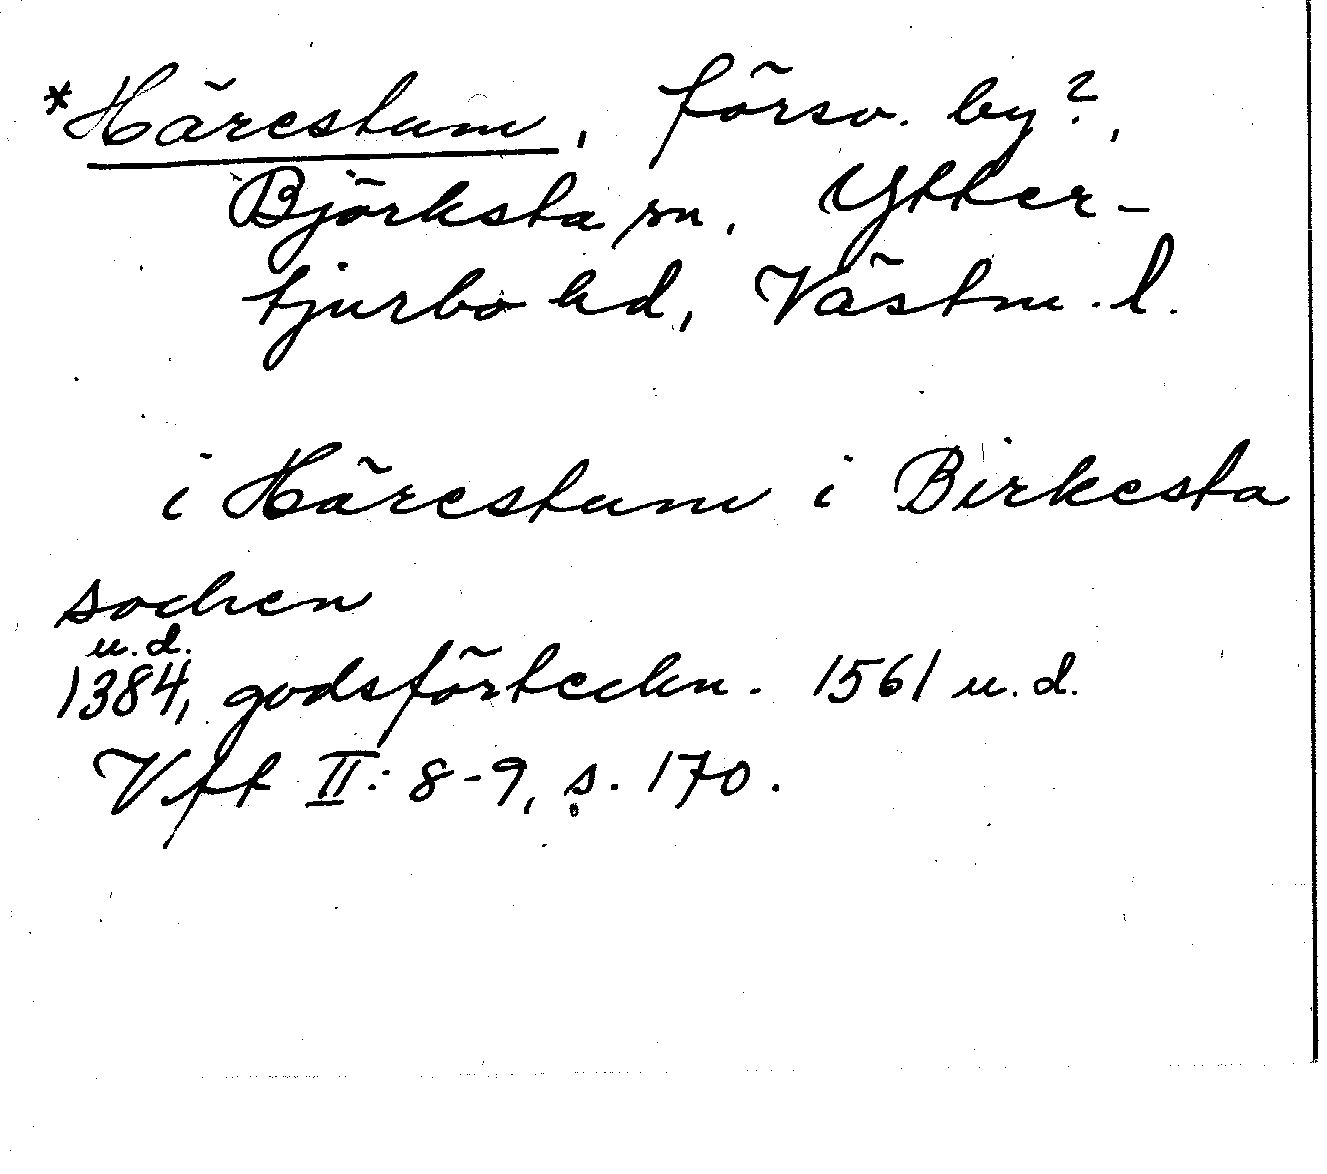 *Härestum, försv. by?,
Björksta sn, Ytter-
tjurbo hd, Västm. l.
i Härestum i Birkesta
socken
u.d.
1384, godsförteckn. 1561 u.d.
Vft II: 8-9, s. 170.